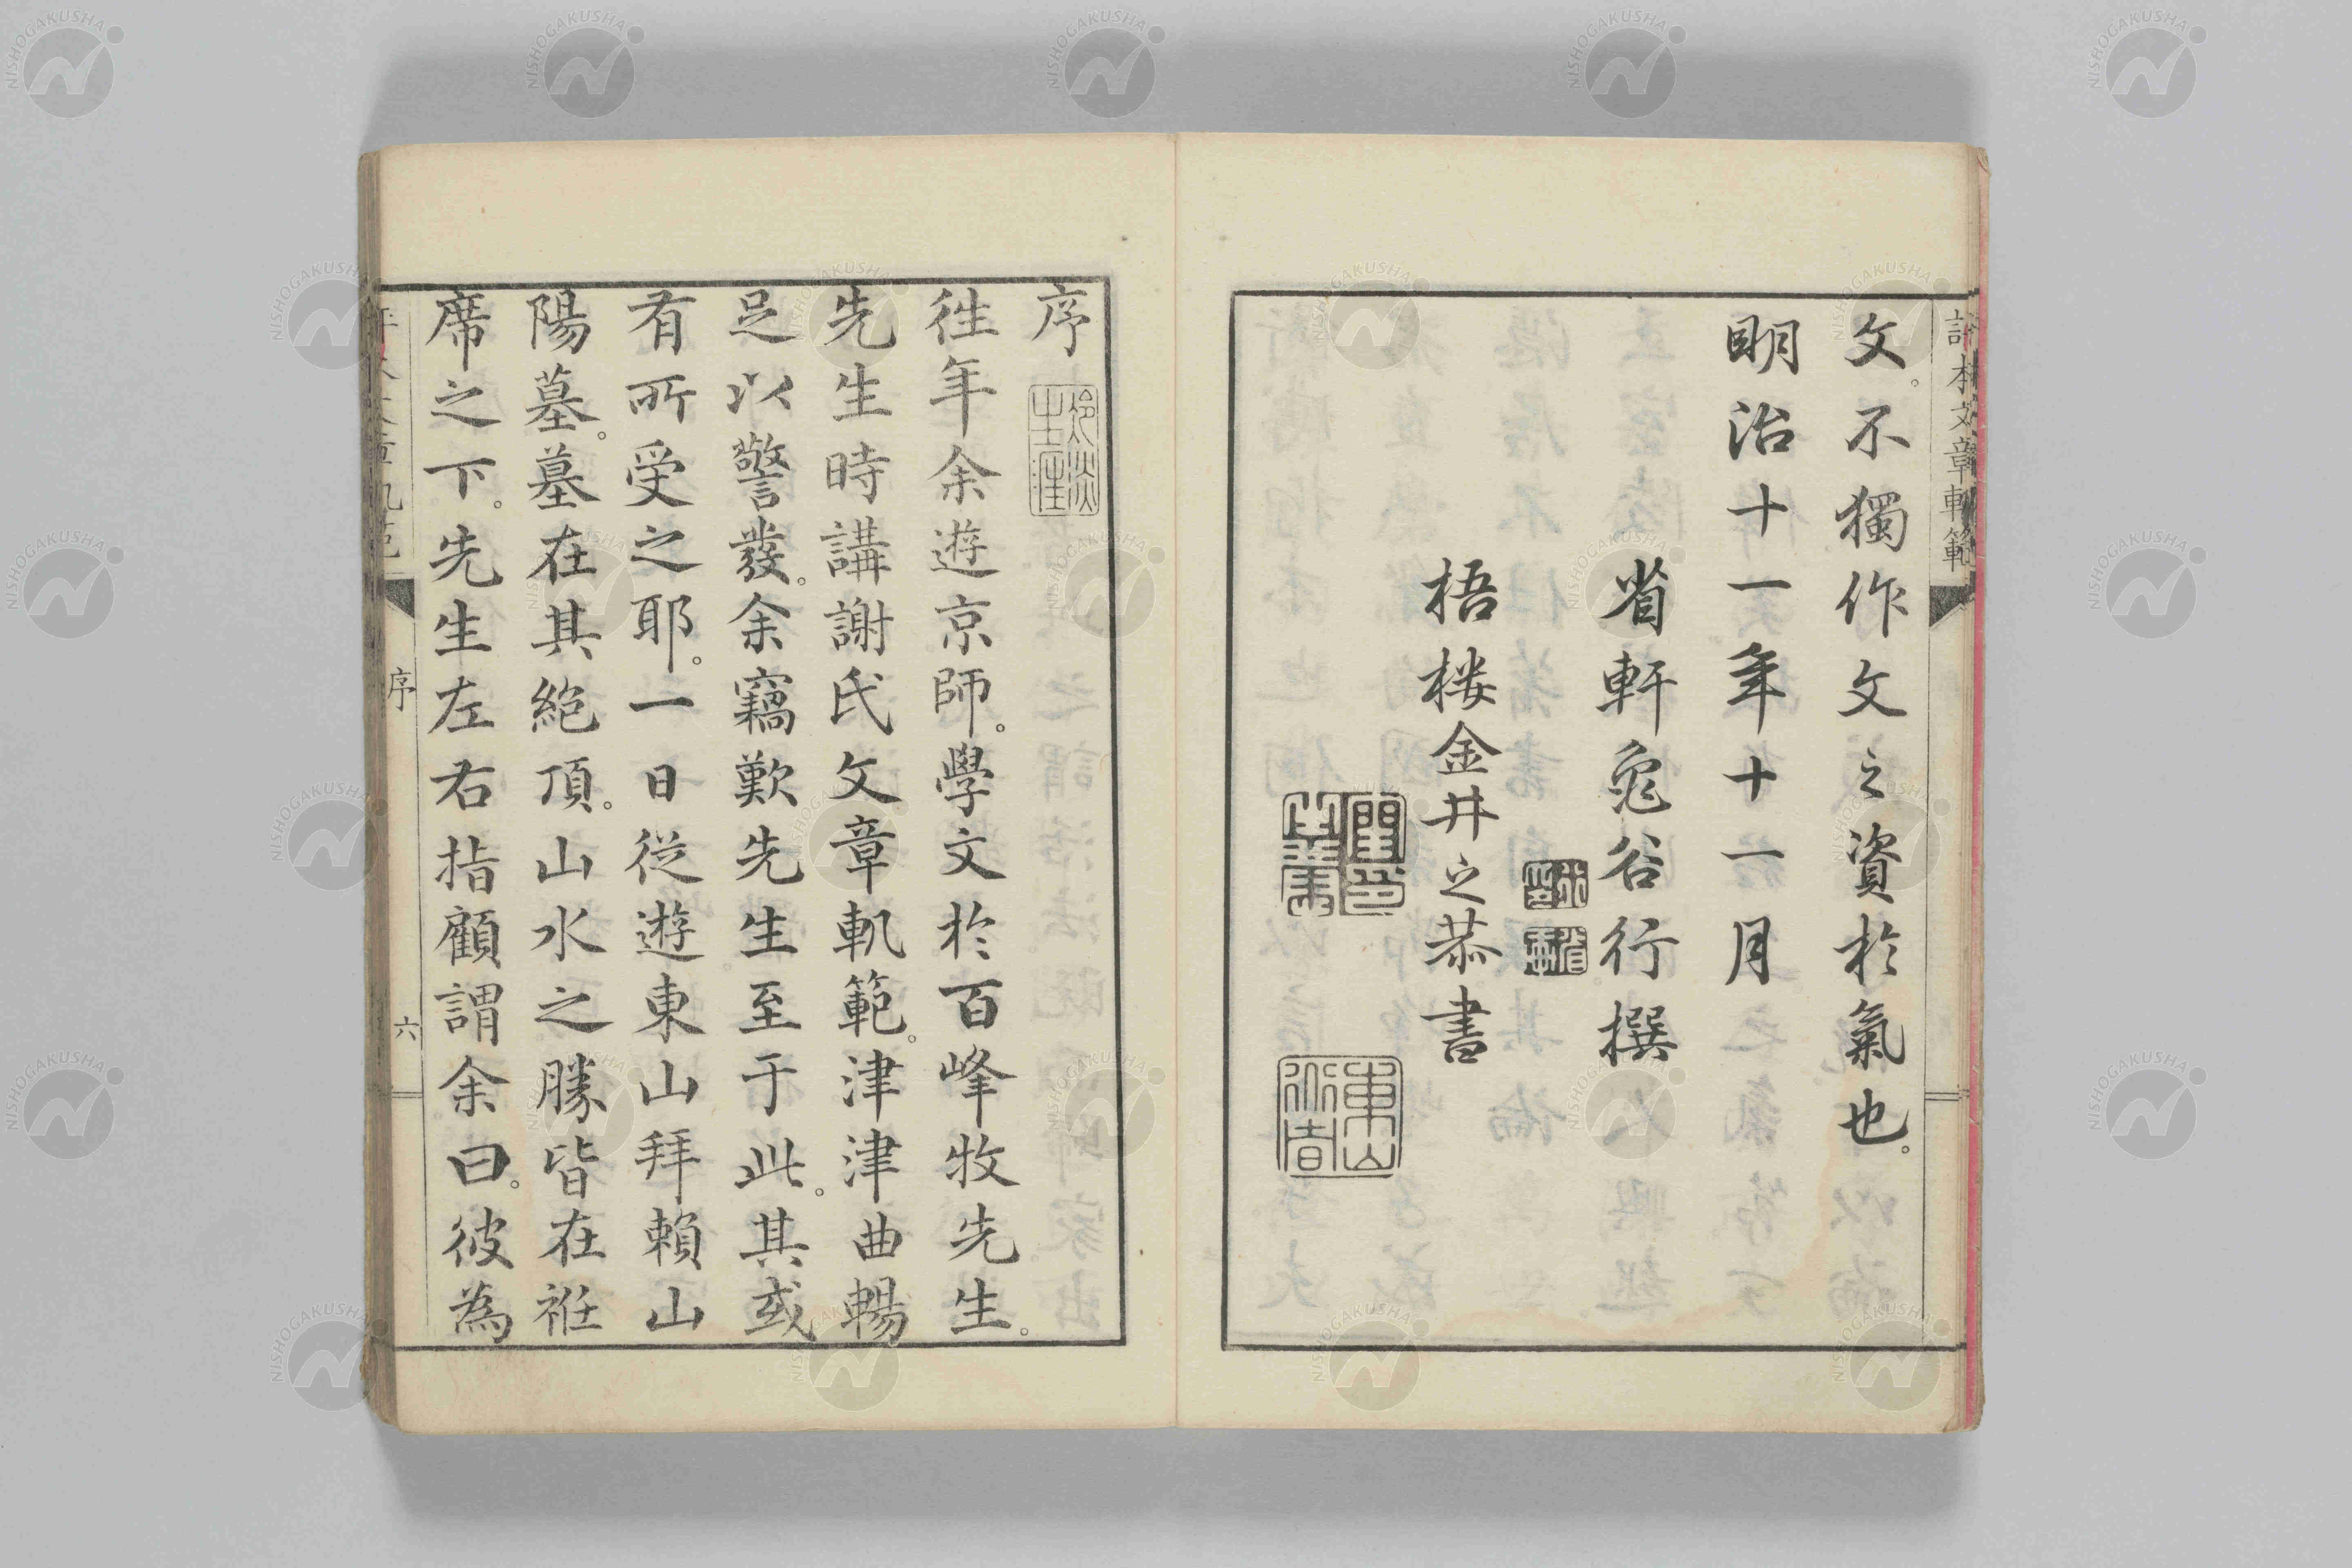 文。不獨作文之資於氣也。
明治十一年十一月
省軒龜谷行撰
梧樓金井之恭書
東山
序
徃年余遊京師。學文於百峰牧先生。
先生時講謝氏文章軌範。津津曲暢
足以警發。余竊歎先生至于此。其或
有所受之耶。一日從遊東山拜賴山
陽墓。墓在其絕頂。山水之勝皆在袵
席之下。先生左右指顧謂余曰。彼為
序
六
NISHOGAKUSHA